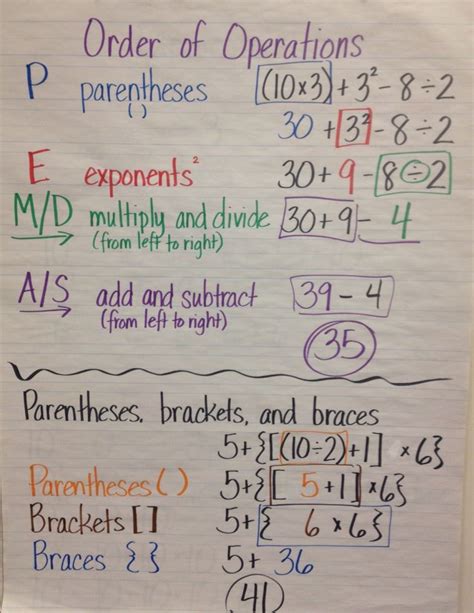 Order of Operations
P parentheses (10×3)+3²-8÷2
( )
30+3²-8÷2
E exponents² 30+9-8÷2
M/D multiply and divide 30+9-4
(from left to right)
A/S add and subtract 39-4
(from left to right)
35
Parentheses, brackets, and braces
5+{[(10÷2)+1] ×6}
Parentheses ( ) 5+{[ 5+1] ×6}
Brackets [ ] 5+{ 6×6}
Braces { } 5+ 36
41